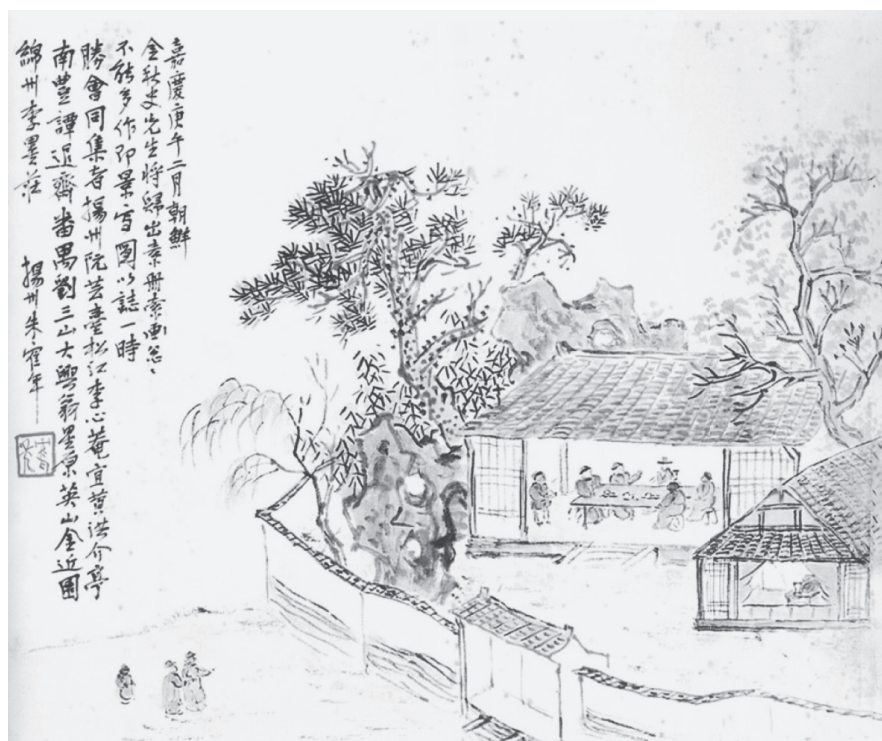 嘉慶庚午二月朝鮮
金秋史先生將歸出素冊索画怱〻
不能多作即景寫圖以誌一時
勝會同集者揚州阮芸臺松江李心菴宜黃洪介亭
南豊譚退齋番禺劉三山大興翁星原英山金近園
綿州李墨莊 揚州朱寉年